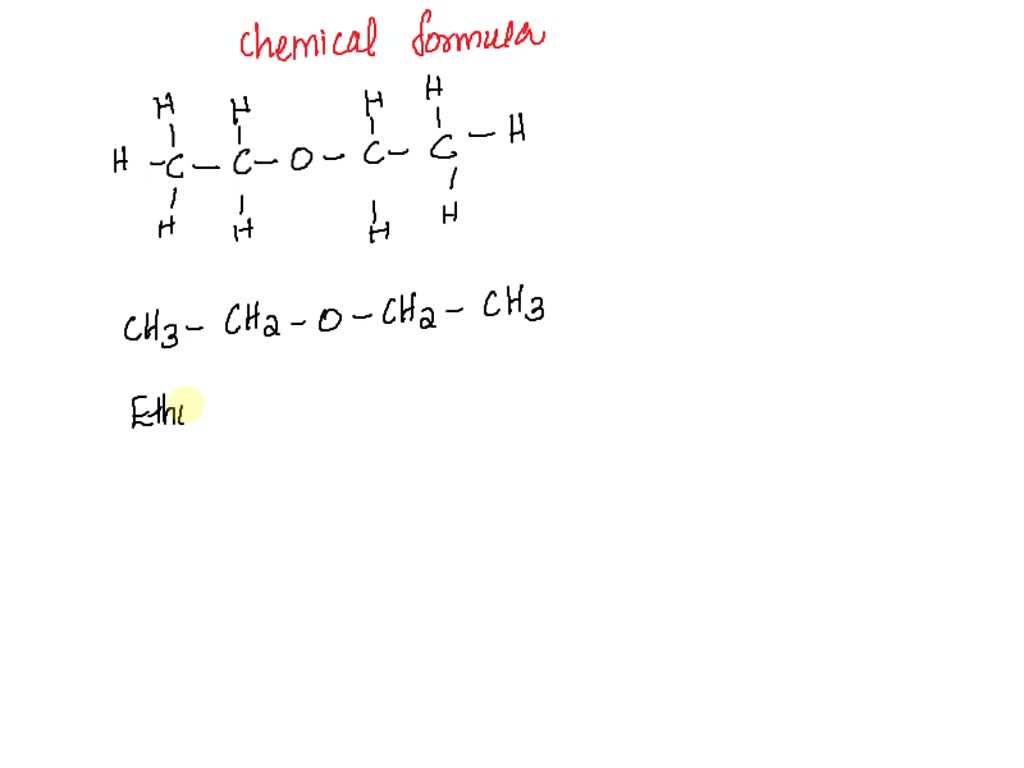 Chemical formula
H H H H
H - C - C - O - C - C - H
H H H H
CH3 - CH2 - O - CH2 - CH3
Eth